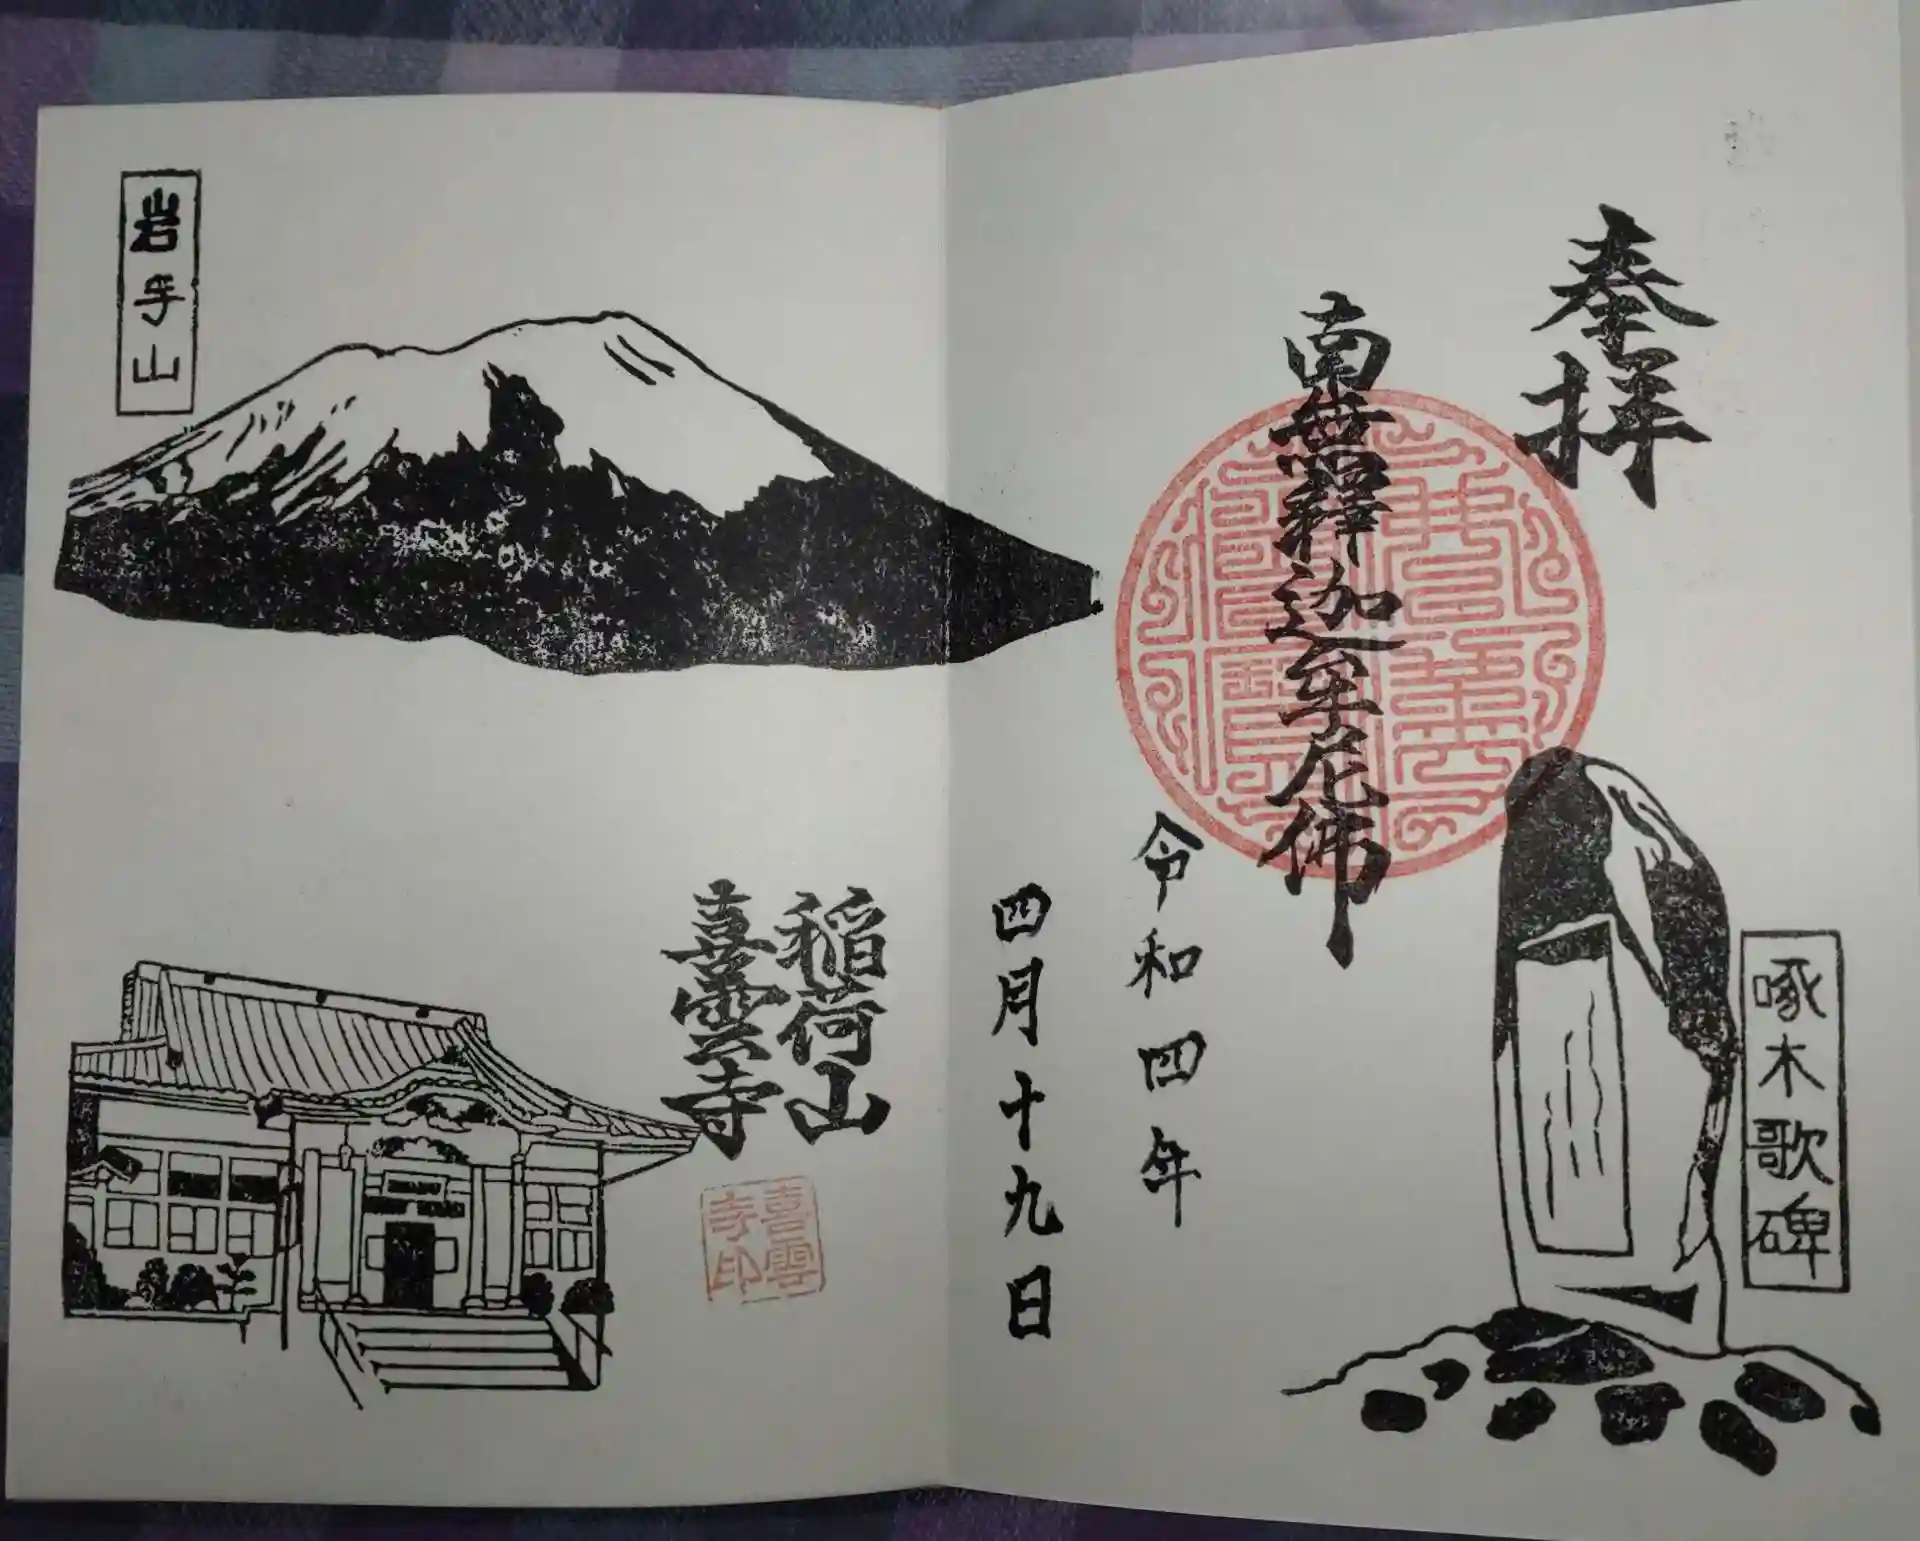 奉拝
南無釋迦牟尼佛
啄木歌碑
令和四年
四月十九日
稲荷山
喜雲寺
喜雲
寺印
岩手山